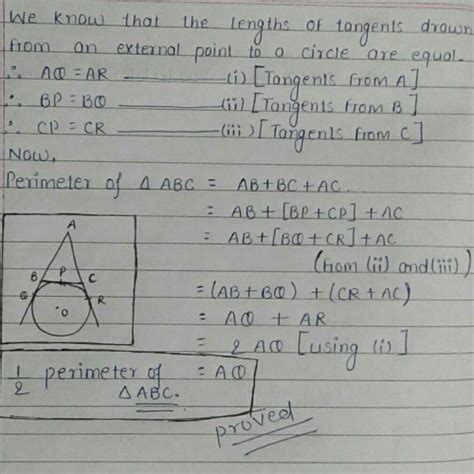 We know that the lengths of tangents drawn
from an external point to a circle are equal.
∴ AQ = AR ——— (i) [Tangents from A]
∴ BP = BQ ——— (ii) [Tangents from B]
∴ CP = CR ——— (iii) [Tangents from C]
Now,
Perimeter of Δ ABC = AB+BC+AC.
= AB + [BP+CP] + AC
= AB + [BQ + CR] + AC
(from (ii) and (iii))
= (AB + BQ) + (CR + AC)
= AQ + AR
= 2 AQ [using (i)]
1/2 perimeter of = AQ
Δ ABC.
proved
A
B
P
C
Q
R
O